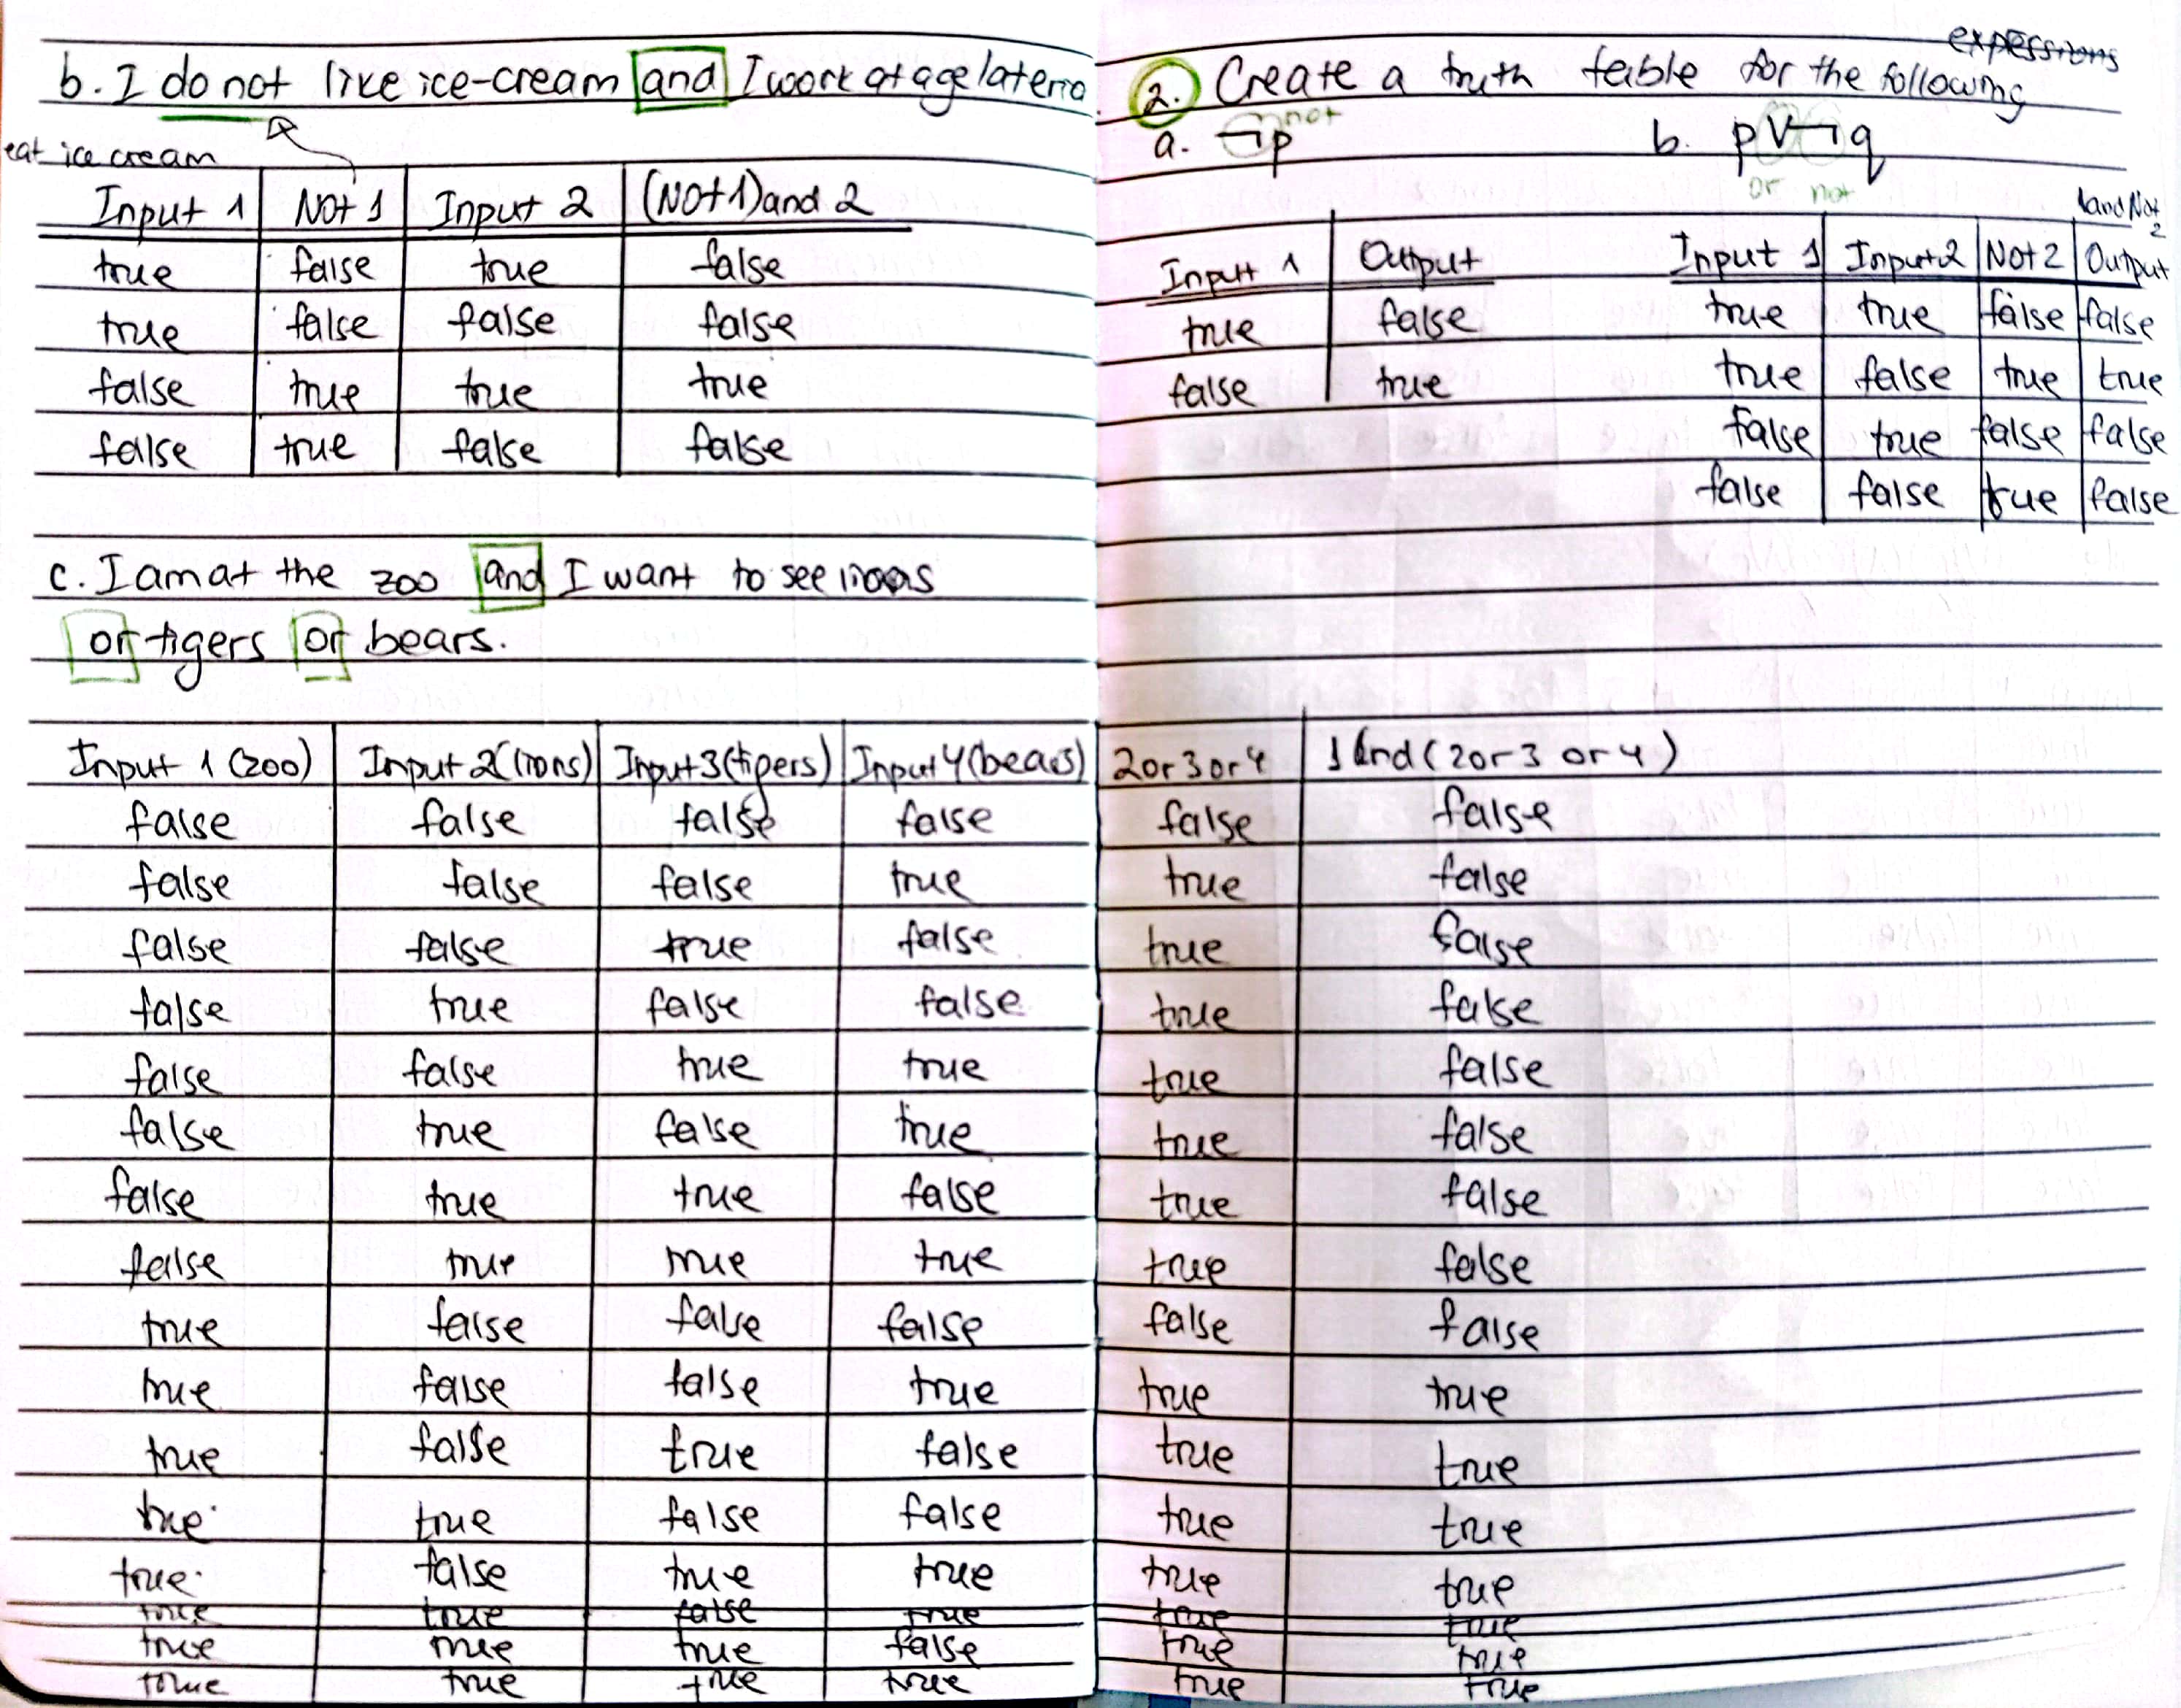 b. I do not like ice-cream and I work at a gelateria
eat ice cream
Input 1 | Not 1 | Input 2 | (Not 1) and 2
true | false | true | false
true | false | false | false
false | true | true | true
false | true | false | false
c. I am at the zoo and I want to see lions
or tigers or bears.
Input 1 (zoo) | Input 2 (lions) | Input 3 (tigers) | Input 4 (bears) | 2 or 3 or 4 | 1 And (2 or 3 or 4)
false | false | false | false | false | false
false | false | false | true | true | false
false | false | true | false | true | false
false | true | false | false | true | false
false | false | true | true | true | false
false | true | false | true | true | false
false | true | true | false | true | false
false | true | true | true | true | false
true | false | false | false | false | false
true | false | false | true | true | true
true | false | true | false | true | true
true | true | false | false | true | true
true | false | true | true | true | true
true | true | false | true | true | true
true | true | true | false | true | true
true | true | true | true | true | true
2. Create a truth table for the following
expessions
a. ¬p
not
Input 1 | Output
true | false
false | true
b. p V ¬q
or not
1 and Not 2
Input 1 | Input 2 | Not 2 | Output
true | true | false | false
true | false | true | true
false | true | false | false
false | false | true | false